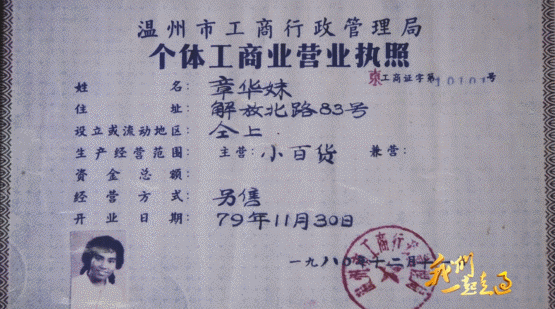 温州市工商行政管理局
个体工商业营业执照
东工商证字第10101号
姓名:章华妹
住址:解放北路83号
设立或流动地区:仝上
生产经营范围:主营:小百货 兼营:
资金总额:
经营方式:另售
开业日期:79年11月30日
一九八〇年十二月十一
我们一起走过